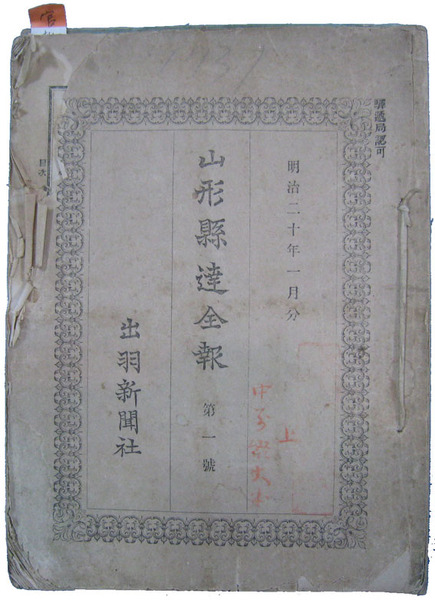 驛遞局認可
明治二十年一月分
山形縣達全報 第一號
出羽新聞社
上
目次